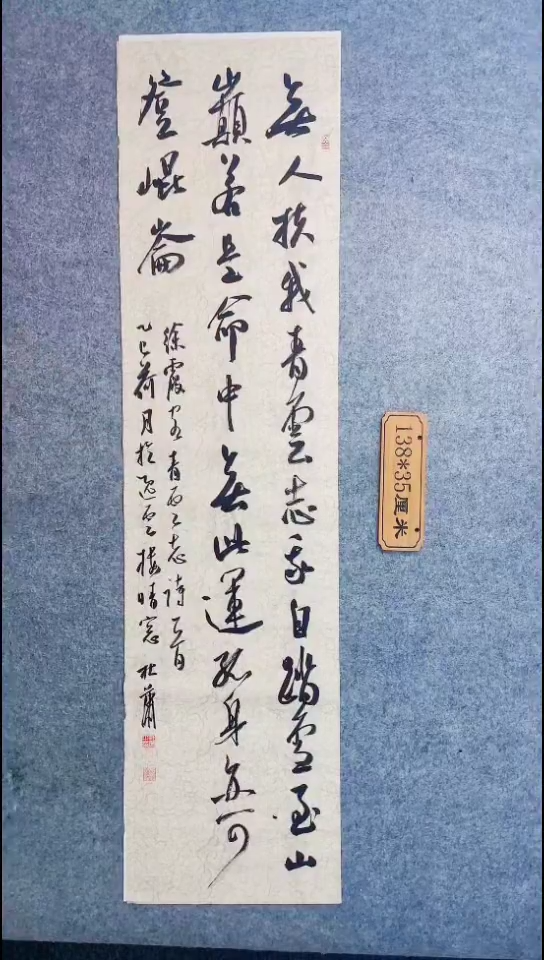 無人扶我青雲志我自踏雪至山
巔若是命中無此運孤身亦可
登崐崙
徐霞客青雲之志詩一首
乙巳荷月於逸雲樓晴窓 杜蕭
138*35厘米